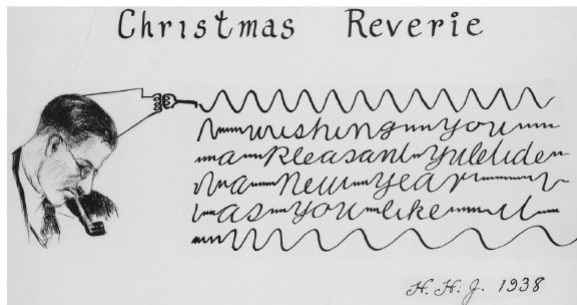 Christmas Reverie
wishing you
a pleasant yuletide
a new year
as you like it
H. H. J. 1938